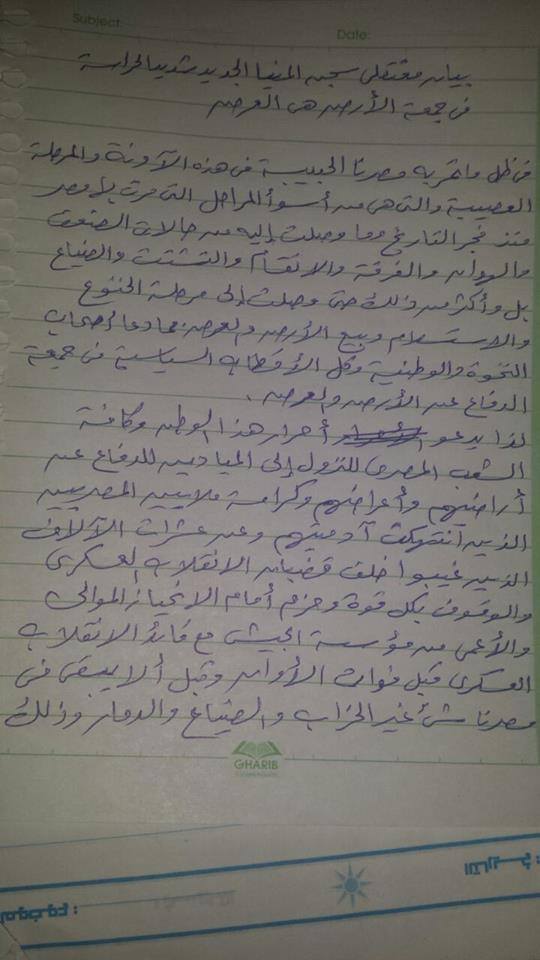 Subject:
Date:
بيان معتقلى سجن المنيا الجديد شديد الحراسة
فى جمعة الأرض هى العرض
فى ظل ما تمر به مصرنا الحبيبة فى هذه الآونة والمرحلة
العصيبة والتى هى من أسوأ المراحل التى مرت بأمصر
منذ فجر التاريخ وما وصلت إليه من حالات الضعف
والهوان والفرقة والانقسام والتشتت والضياع
بل وأكثر من ذلك حتى وصلت إلى مرحلة الخنوع
والاستسلام وبيع الأرض والعرض مما دعا أصحاب
النخوة والوطنية وكل الأقطاب السياسية فى جمعة
الدفاع عن الأرض والعرض .
لذا يدعو أحرار هذا الوطن وكافة
الشعب المصرى للنزول إلى الميادين للدفاع عن
أراضيهم وأعراضهم وكرامة ملايين المصريين
الذين انتهكت آدميتهم وعن عشرات الآلاف
الذين غيبوا خلف قضبان الانقلاب العسكرى
والوقوف بكل قوة وحزم أمام الانحياز الموالى
والأعمى من مؤسسة الجيش مع قائد الانقلاب
العسكرى قبل فوات الأوان وقبل ألا يبقى فى
مصرنا شئ غير الخراب والضياع والدمار وذلك
GHARIB